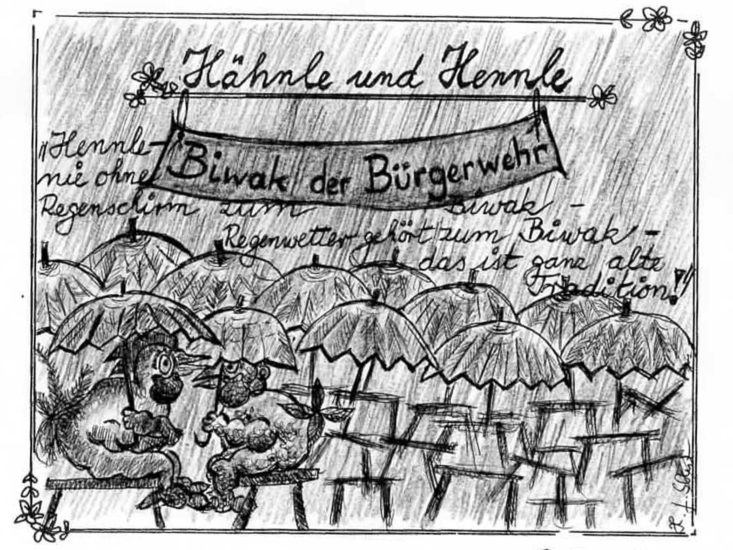 Hähnle und Hennle
Biwak der Bürgerwehr
„Hennle –
nie ohne
Regenschirm zum Biwak –
Regenwetter gehört zum Biwak –
das ist ganz alte
Tradition!"